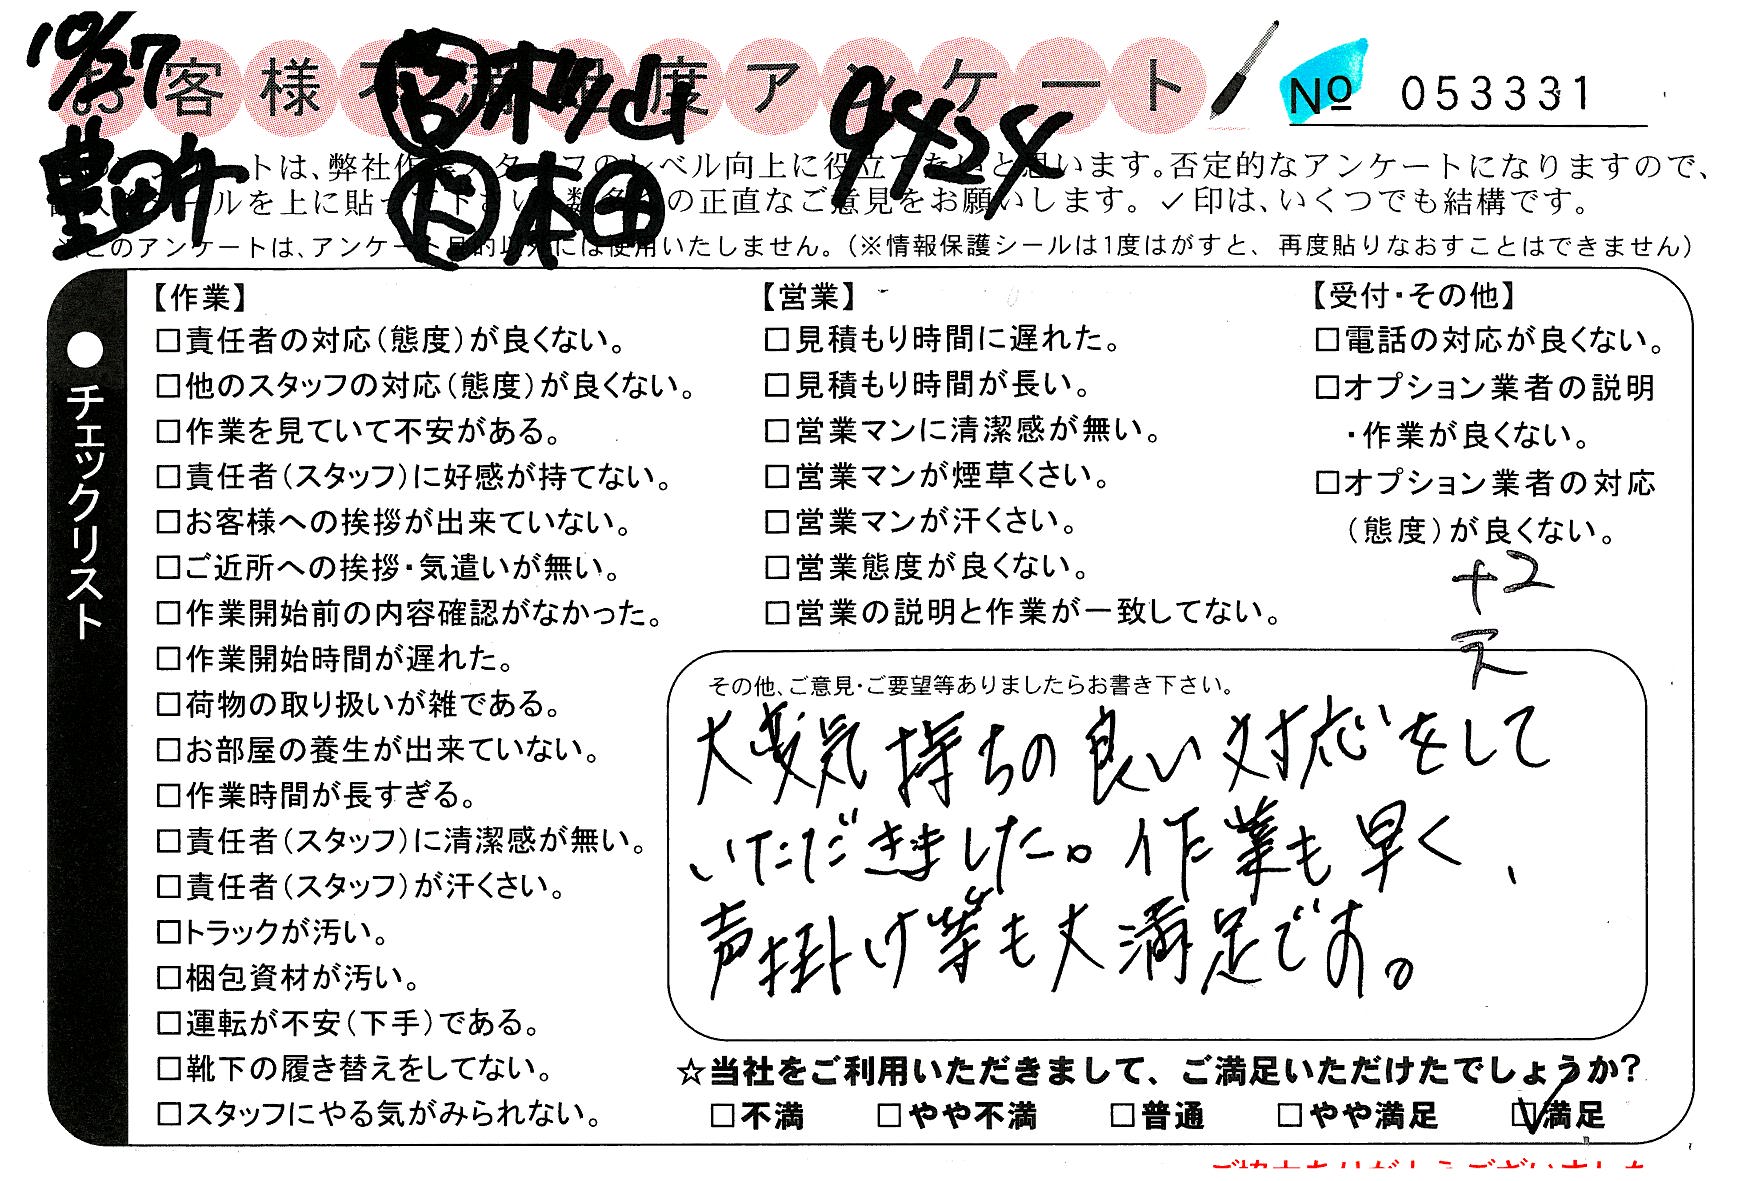 10/27
お客様不満足度アンケート
No 053331
豊田町
9424
本田
このアンケートは、弊社作業スタッフのレベル向上に役立てたいと思います。否定的なアンケートになりますので、
シールを上に貼って下さい。数多くの正直なご意見をお願いします。✓印は、いくつでも結構です。
※このアンケートは、アンケート目的以外には使用いたしません。（※情報保護シールは1度はがすと、再度貼りなおすことはできません）
●チェックリスト
【作業】
□責任者の対応（態度）が良くない。
□他のスタッフの対応（態度）が良くない。
□作業を見ていて不安がある。
□責任者（スタッフ）に好感が持てない。
□お客様への挨拶が出来ていない。
□ご近所への挨拶・気遣いが無い。
□作業開始前の内容確認がなかった。
□作業開始時間が遅れた。
□荷物の取り扱いが雑である。
□お部屋の養生が出来ていない。
□作業時間が長すぎる。
□責任者（スタッフ）に清潔感が無い。
□責任者（スタッフ）が汗くさい。
□トラックが汚い。
□梱包資材が汚い。
□運転が不安（下手）である。
□靴下の履き替えをしてない。
□スタッフにやる気がみられない。
【営業】
□見積もり時間に遅れた。
□見積もり時間が長い。
□営業マンに清潔感が無い。
□営業マンが煙草くさい。
□営業マンが汗くさい。
□営業態度が良くない。
□営業の説明と作業が一致してない。
【受付・その他】
□電話の対応が良くない。
□オプション業者の説明
・作業が良くない。
□オプション業者の対応
（態度）が良くない。
+2
その他、ご意見・ご要望等ありましたらお書き下さい。
大変気持ちの良い対応をして
いただきました。作業も早く、
声掛け等も大満足です。
☆当社をご利用いただきまして、ご満足いただけたでしょうか？
□不満 □やや不満 □普通 □やや満足 ☑満足
ご協力ありがとうございました